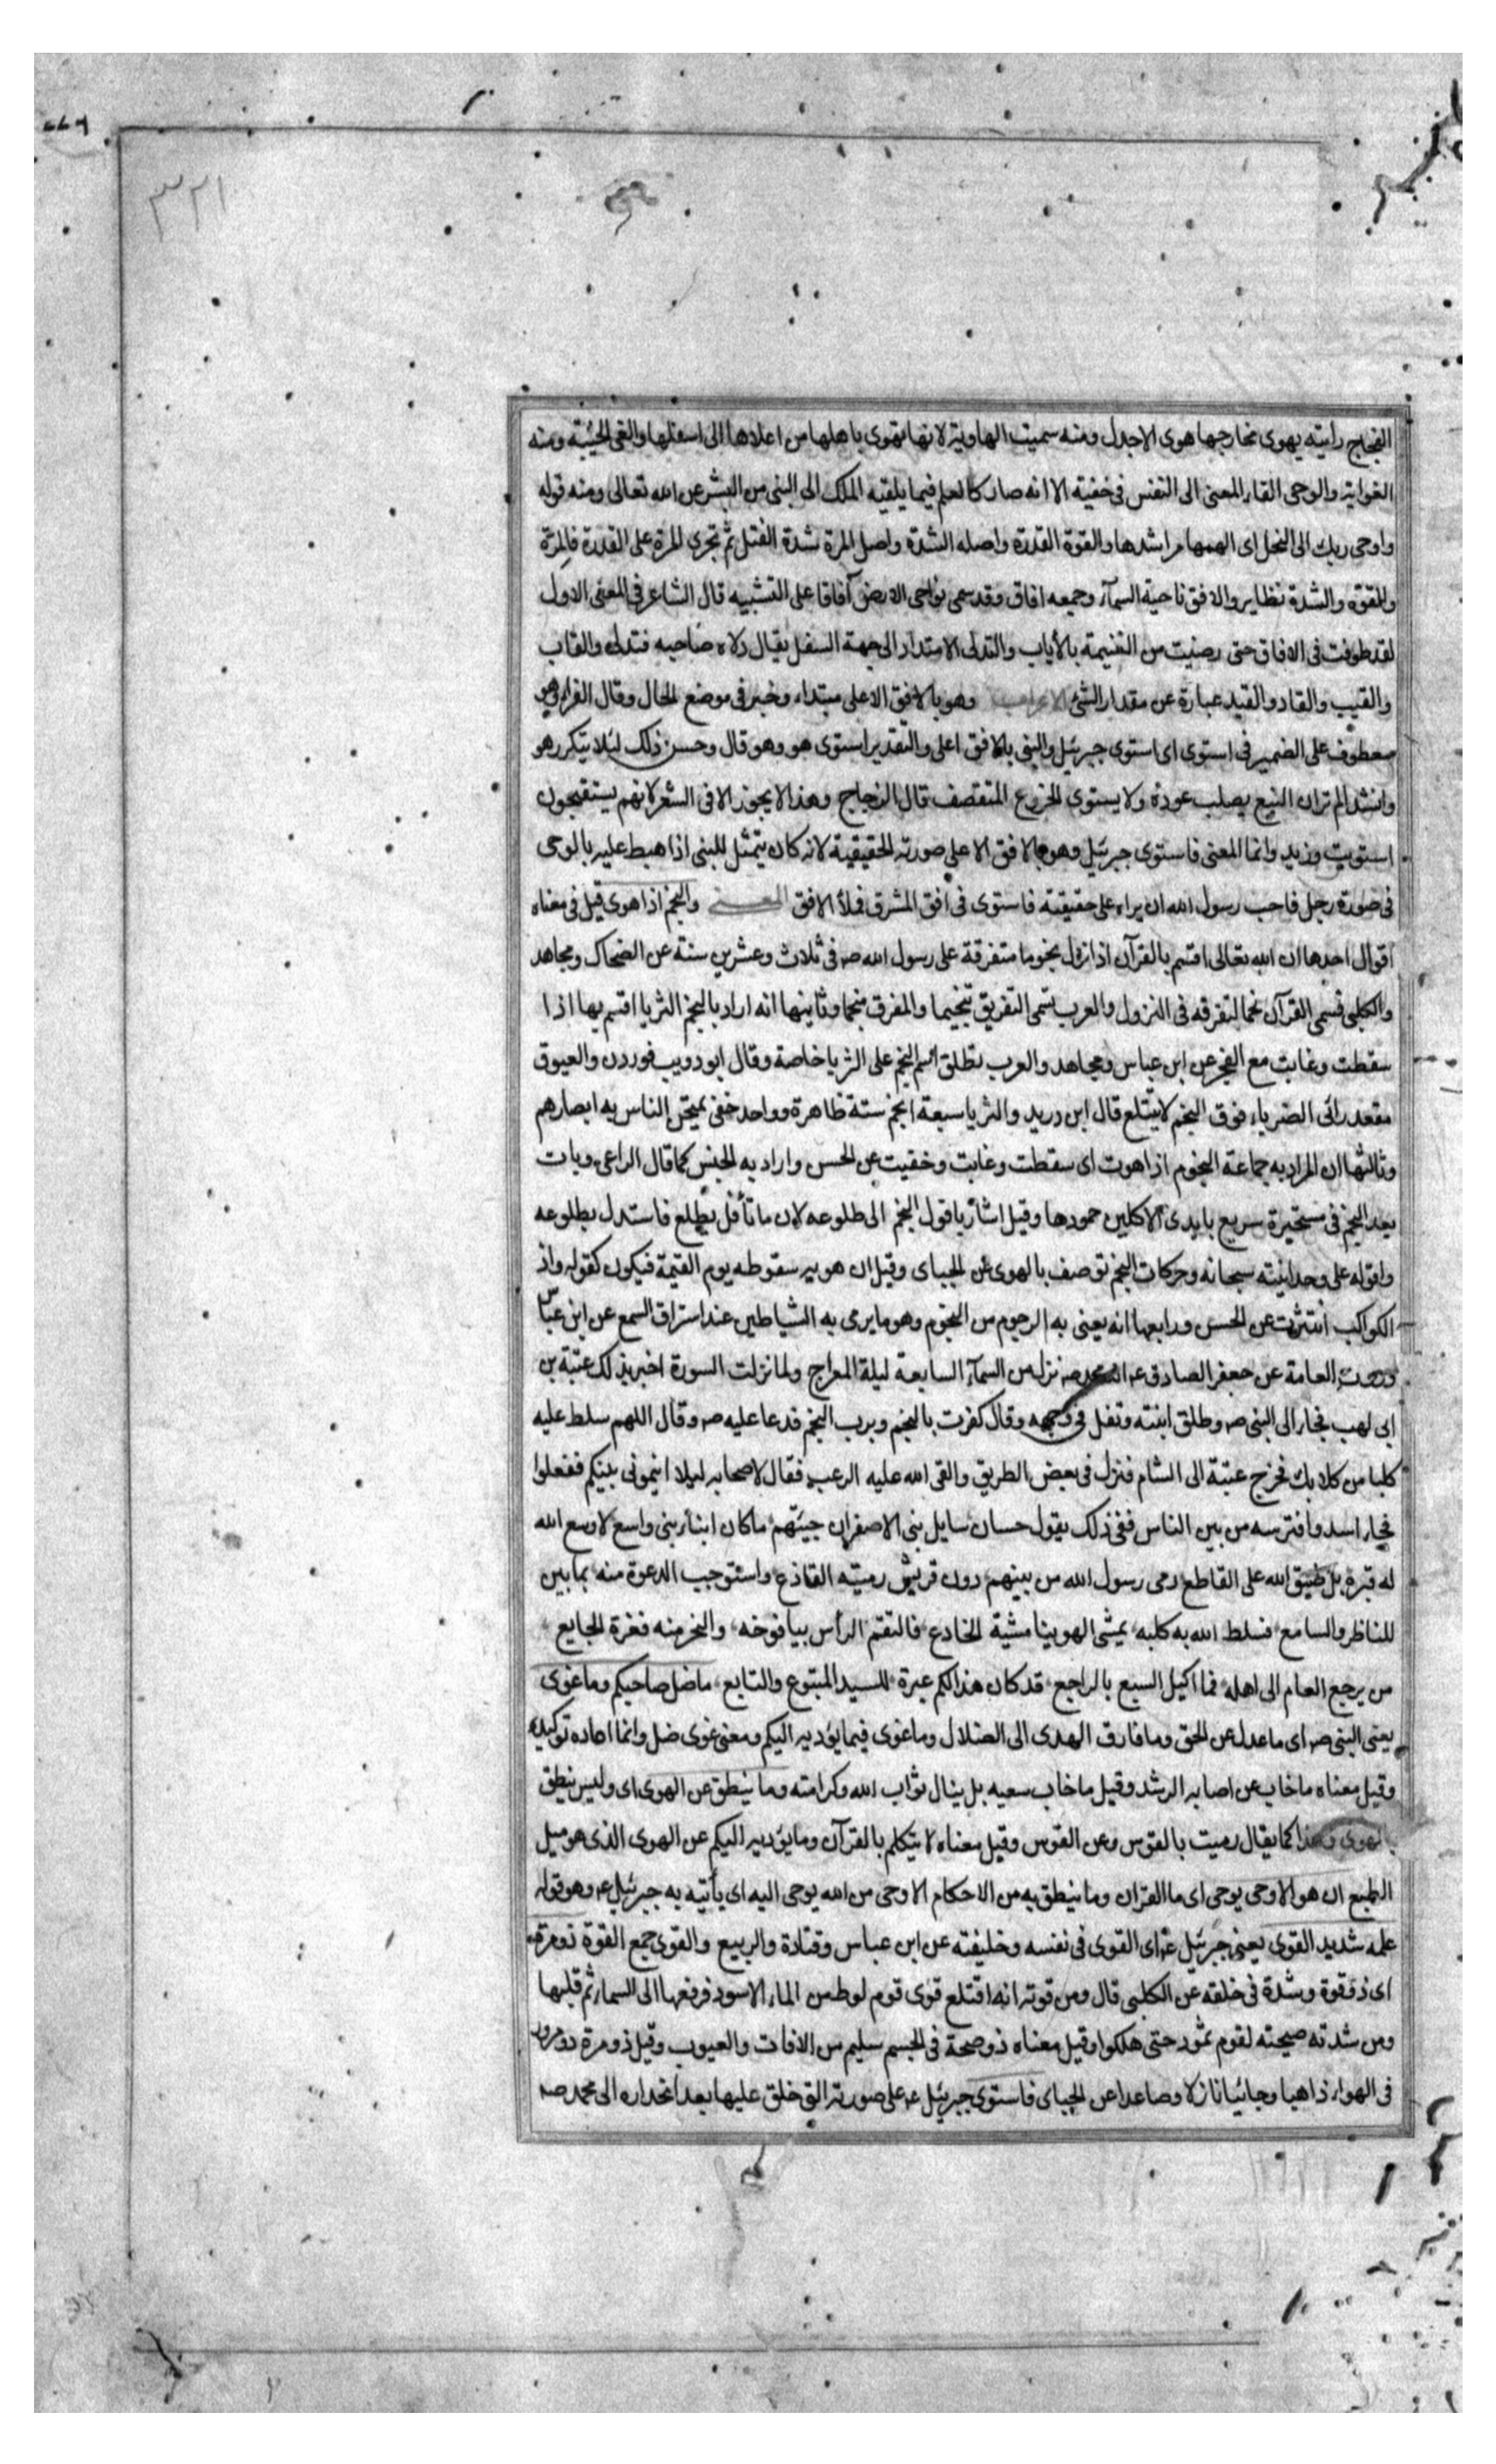 ٣٢١
الفجاج رايته يهوى مخارجها هوى الاجدل ومنه سميت الهاوية لانها تهوى باهلها من اعلاها الى اسفلها والغى الخيبة ومنه
الغواية والوحى القاء المعنى الى النفس فى خفية الا انه صار كالعلم فيما يلقيه الملك الى النبى من البشر عن الله تعالى ومنه قوله
واوحى ربك الى النحل اى الهمها مراشدها والقوة القدرة واصله الشدة واصل المرة شدة الفتل ثم تجرى المرة على القدرة فالمرة
والقوة والشدة نظاير والافق ناحية السمآء وجمعه افاق وقد سمى نواحى الارض آفاقا على التشبيه قال الشاعر فى المعنى الاول
لقد طوفت فى الافاق حتى رضيت من الغنيمة بالأياب والتدلى الامتداد الى جهة السفل يقال دلاه صاحبه فتدلى والقاب
والقيب والقاد والقيد عبارة عن مقدار الشئ الاعراب وهو بالافق الاعلى مبتداء وخبر فى موضع الحال وقال الفراء وهو
معطوف على الضمير فى استوى اى استوى جبرئيل والنبى بالافق اعلى والتقدير استوى هو وهو قال وحسن ذلك لئلا يتكرر هو
وانشد الم تر ان النبع يصلب عوده ولا يستوى الخروع المتقصف قال الزجاج وهذا لا يجوز الا فى الشعر لانهم يستقبحون
استويت وزيد وانما المعنى فاستوى جبرئيل وهو بالافق الاعلى صورته الحقيقية لانه كان يتمثل للنبى اذا هبط عليه بالوحى
فى صورة رجل فاحب رسول الله ان يراه على حقيقته فاستوى فى افق المشرق فملأ الافق المعنى والنجم اذا هوى قيل فى معناه
اقوال احدها ان الله تعالى اقسم بالقرآن اذ انزل نجوما متفرقة على رسول الله صه فى ثلاث وعشرين سنة عن الضحاك ومجاهد
والكلبى فسمى القرآن نجما لتفرقه فى النزول والعرب تسمى التفريق تنجيما والمفرق منجما وثانيها انه اراد بالنجم الثريا اقسم بها اذا
سقطت وغابت مع الفجر عن ابن عباس ومجاهد والعرب تطلق اسم النجم على الثريا خاصة وقال ابو دويب فوردن والعيوق
مقعد رائى الضرباء فوق النجم لا يتتلع قال ابن دريد والثريا سبعة انجم ستة ظاهرة وواحد خفى يمتحن الناس به ابصارهم
وثالثها ان المراد به جماعة النجوم اذا هوت اى سقطت وغابت وخفيت عن الحس واراد به الجنس كما قال الراعى وبات
يعد النجم فى مستحيرة سريع بايدى الاكلين جمودها وقيل اشار بافول النجم الى طلوعه لان ما تأفل يطلع فاستدل بطلوعه
وافوله على وحدانيته سبحانه وحركات النجم توصف بالهوى عن الجباى وقيل ان هويه سقوطه يوم القيمة فيكون كقوله واذ
الكواكب انتثرت عن الحسن ورابعها انه يعنى به الرجوم من النجوم وهو ما يرمى به الشياطين عند استراق السمع عن ابن عباس
وروت العامة عن جعفر الصادق عه انه محمد صه نزل من السمآء السابعة ليلة المعراج ولما نزلت السورة اخبر بذلك عتبة بن
ابى لهب فجاء الى النبى صه وطلق ابنته وتفل فى وجهه وقال كفرت بالنجم وبرب النجم فدعا عليه صه وقال اللهم سلط عليه
كلبا من كلابك فخرج عتبة الى الشام فنزل فى بعض الطريق والقى الله عليه الرعب فقال لاصحابه ليلا انيمونى بينكم ففعلوا
فجاء اسد وافترسه من بين الناس ففى ذلك يقول حسان سايل بنى الاصفر ان جيتهم ما كان ابناء بنى واسع لا وسع الله
له قبره بل ضيق الله على القاطع رمى رسول الله من بينهم دون قريش رمية القاذع واستوجب الدعوة منه بما بين
للناظر والسامع فسلط الله به كلبه يمشى الهوينا مشية الخادع فالتقم الرأس بيافوخه والنحر منه فغرة الجايع
من يرجع العام الى اهله فما اكيل السبع بالراجع قد كان هذا لكم عبرة للسيد المتبوع والتابع ما ضل صاحبكم وما غوى
يعنى النبى صه اى ما عدل عن الحق وما فارق الهدى الى الضلال وما غوى فيما يؤديه اليكم ومعنى غوى ضل وانما اعاده توكيدا
وقيل معناه ما خاب عن اصابه الرشد وقيل ما خاب سعيه بل ينال ثواب الله وكرامته وما ينطق عن الهوى اى وليس ينطق
بالهوى وهذا كما يقال رميت بالقوس وعن القوس وقيل معناه لا يتكلم بالقرآن وما يؤديه اليكم عن الهوى الذى هو ميل
الطبع ان هو الا وحى يوحى اى ما القران وما ينطق به من الاحكام الا وحى من الله يوحى اليه اى يأتيه به جبرئيل عه وهو قوله
علمه شديد القوى يعنى جبرئيل عه اى القوى فى نفسه وخليفته عن ابن عباس وقتادة والربيع والقوى جمع القوة ذو مرة
اى ذو قوة وشدة فى خلقه عن الكلبى قال ومن قوته انه اقتلع قوى قوم لوط من الماء الاسود فرفعها الى السماء ثم قلبها
ومن شدته صيحته لقوم ثمود حتى هلكوا وقيل معناه ذو صحة فى الجسم سليم من الافات والعيوب وقيل ذو مرة ذو مرور
فى الهواء ذاهبا وجائيا نازلا وصاعدا عن الجباى فاستوى جبرئيل عه على صورته التى خلق عليها بعد انحداره الى محمد صه